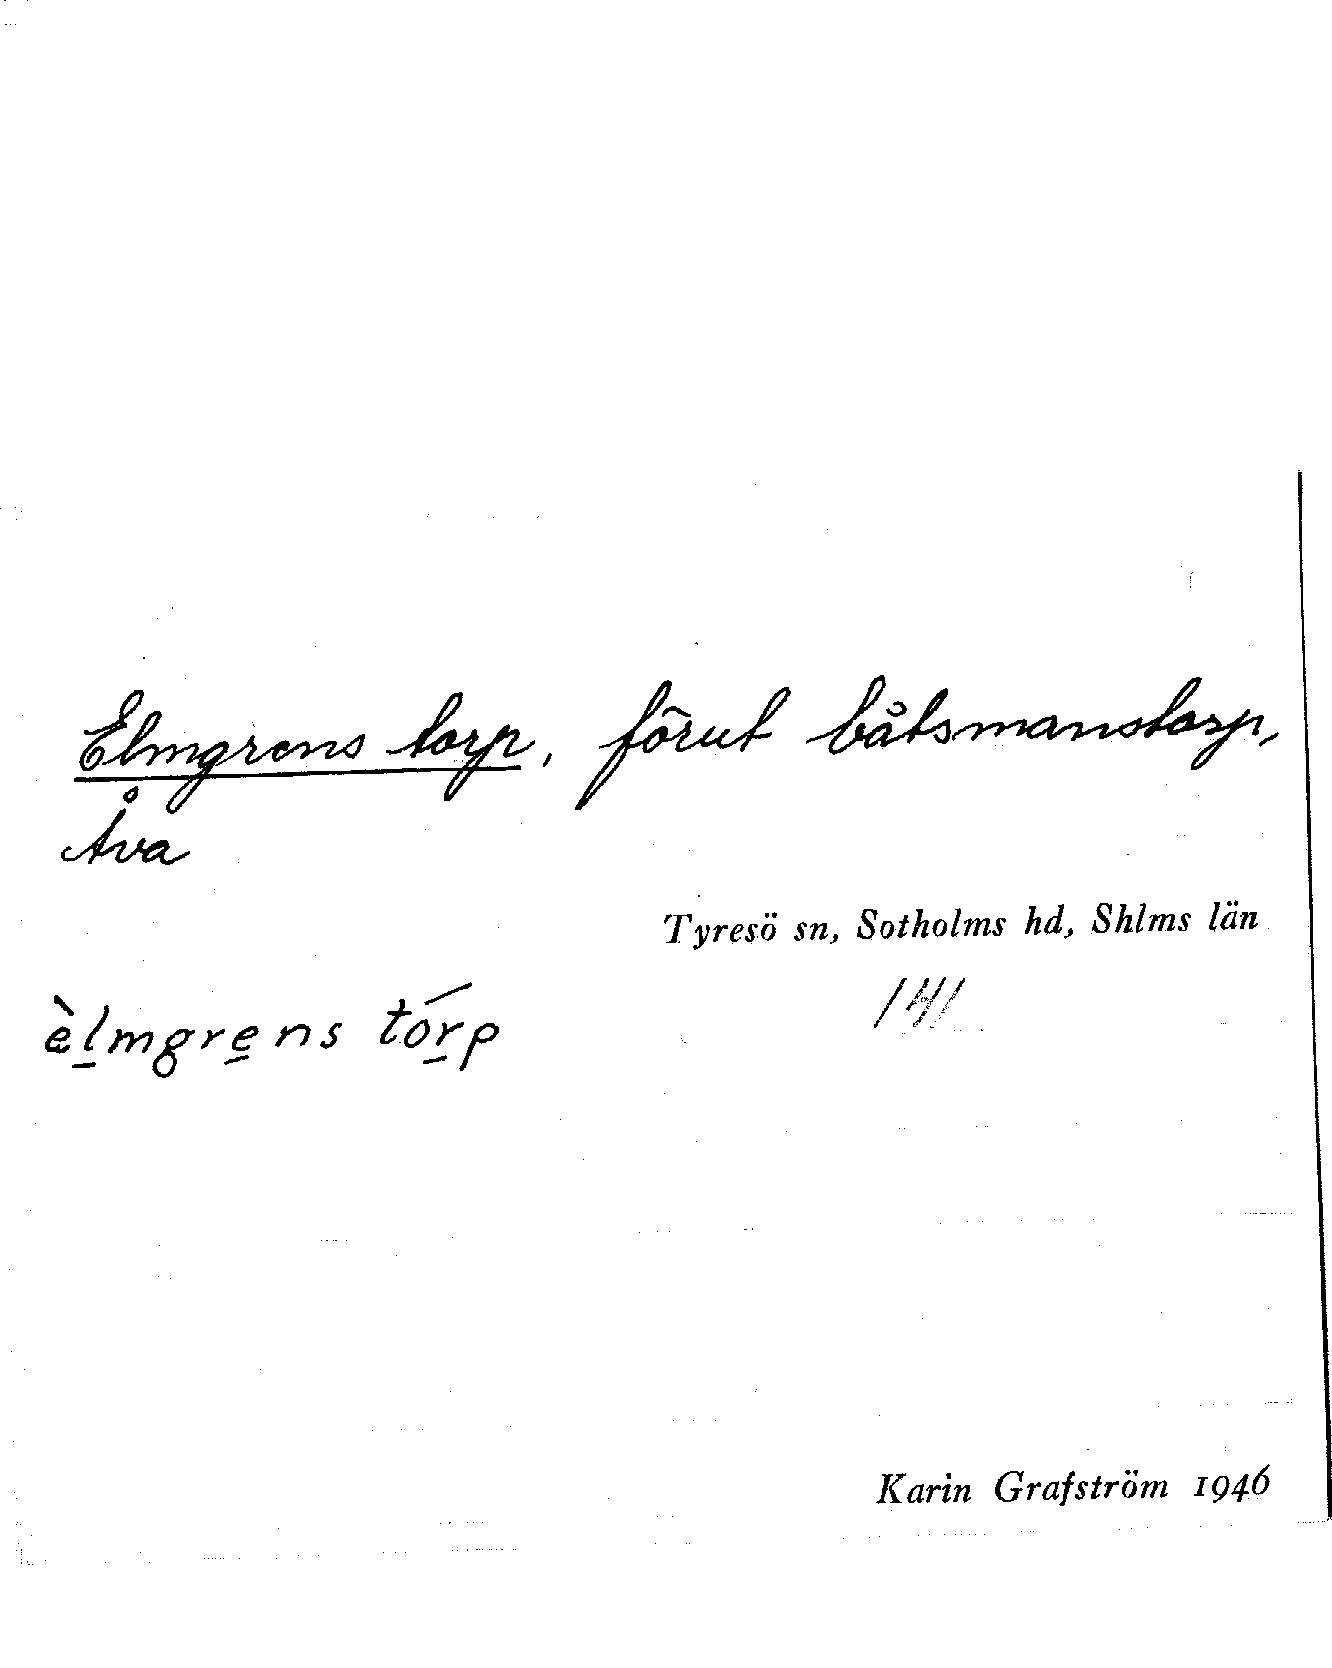 Elmgrens torp, förut båtsmanstorp,
Åva
Tyresö sn, Sotholms hd, Shlms län
èlmgrens tórp
Karin Grafström 1946